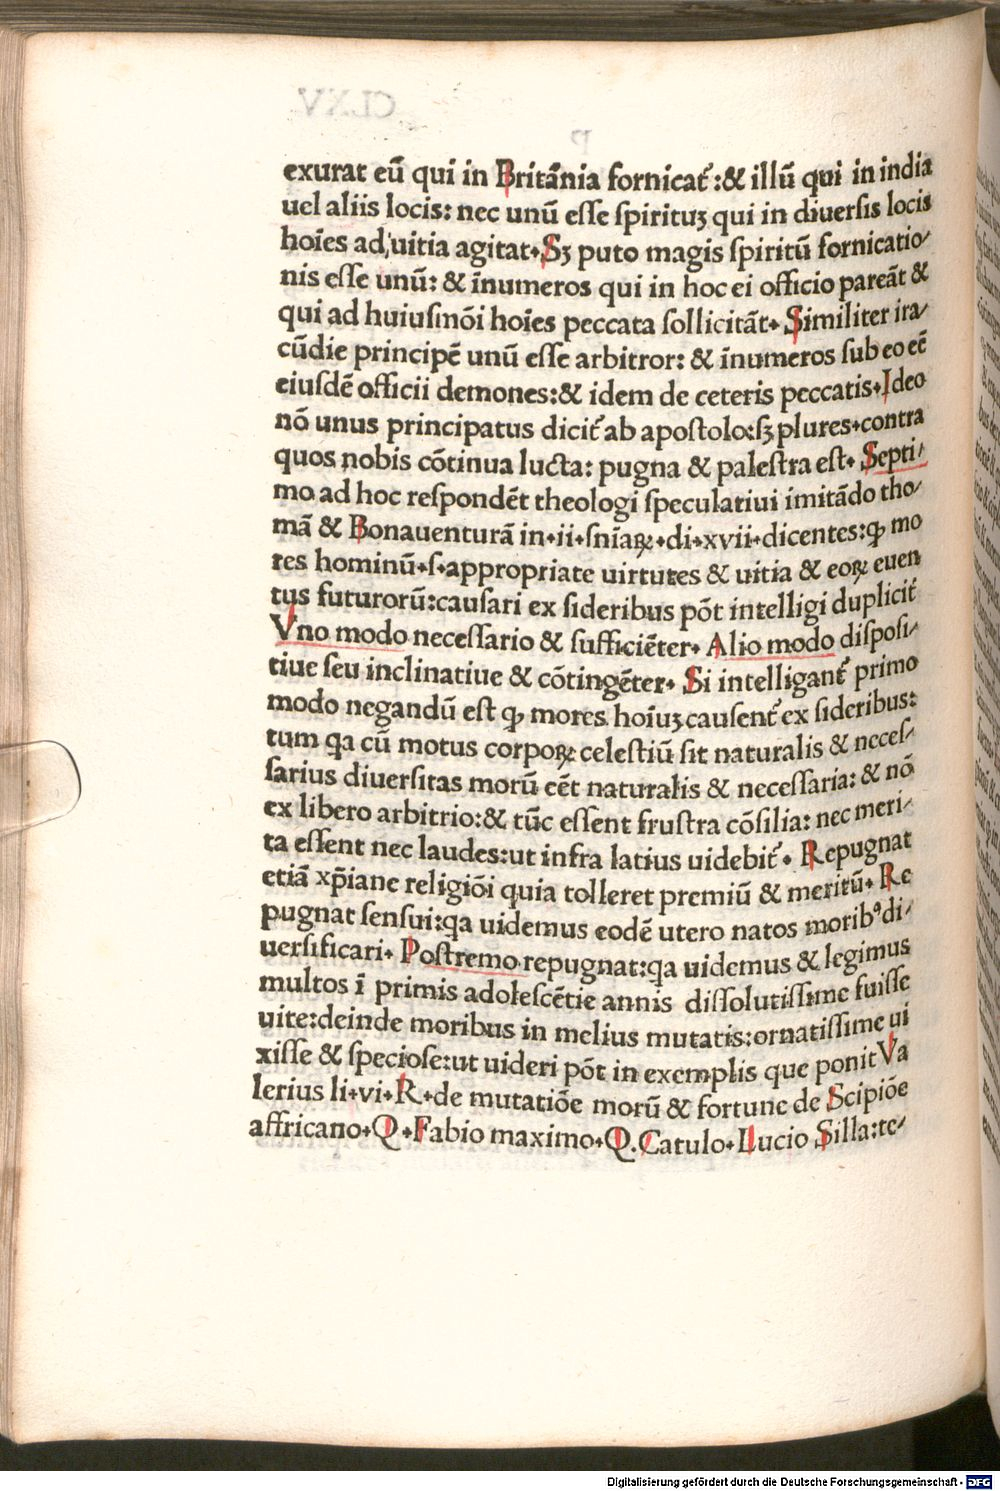 exurat eū qui in Britānia fornicat᷑ :& illū qui in india
uel aliis locis: nec unū eſſe ſpirituꝫ qui in diuerſis locis
hoīes ad uitia agitat. Sꝫ puto magis ſpiritū fornicatio/
nis eſſe unū: & īnumeros qui in hoc ei officio pareāt &
qui ad huiuſmōi hoīes peccata ſollicitāt. Similiter ira/
cūdie principē unū eſſe arbitror: & īnumeros ſub eo eē
eiuſdē officii demones:& idem de ceteris peccatis. Ideo
nō unus principatus dicit᷑ ab apoſtolo:ſꝫ plures.contra
quos nobis cōtinua lucta: pugna & paleſtra eſt. Septi/
mo ad hoc reſpondēt theologi ſpeculatiui imitādo tho/
mā & Bonauenturā in.ii.ſnīaꝝ.di.xvii.dicentes:ꝙ mo
res hominū.ſ.appropriate uirtutes & uitia & eoꝝ euen
tus futurorū:cauſari ex ſideribus pōt intelligi duplicit᷑
Vno modo neceſſario & ſufficiēter. Alio modo diſpoſi/
tiue ſeu inclinatiue & cōtingēter. Si intelligant᷑ primo
modo negandū eſt ꝙ mores hoīuꝫ cauſent᷑ ex ſideribus:
tum qa cū motus corpoꝝ celeſtiū ſit naturalis & neceſ/
ſarius diuerſitas morū eēt naturalis & neceſſaria: & nō
ex libero arbitrio:& tūc eſſent fruſtra cōſilia: nec meri/
ta eſſent nec laudes:ut infra latius uidebit᷑. Repugnat
etiā xp̄iane religiōi quia tolleret premiū & meritū. Re
pugnat ſenſui:qa uidemus eodē utero natos moribꝰ di/
uerſificari. Poſtremo repugnat:qa uidemus & legimus
multos ī primis adoleſcētie annis diſſolutiſſime fuiſſe
uite:deinde moribus in melius mutatis:ornatiſſime ui
xiſſe & ſpecioſe:ut uideri pōt in exemplis que ponit Va
lerius li.vi.R.de mutatiōe morū & fortune de Scipiōe
affricano.Q.Fabio maximo.Q.Catulo.Lucio Silla:te/
Digitalisierung gefördert durch die Deutsche Forschungsgemeinschaft - DFG